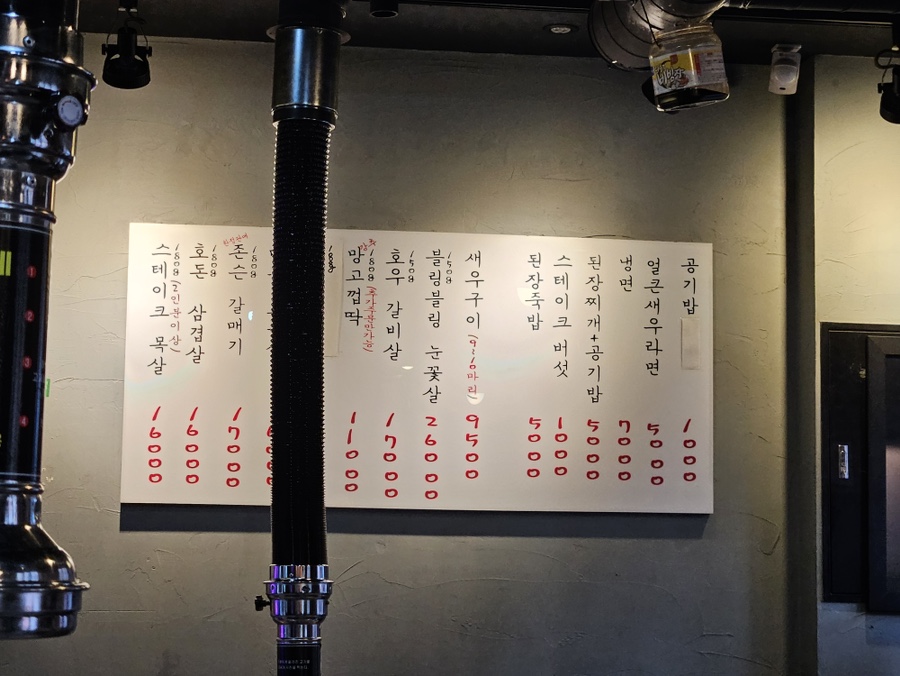 스테이크 목살 180g (2인분이상) 16000
호돈 삼겹살 180g 16000
한정판매 존슨 갈매기 180g 17000
180g
망고껍딱 180g 11000
호우 갈비살 150g 17000
블링블링 눈꽃살 150g 26000
새우구이 (9~10마리) 9500
된장죽밥 5000
스테이크 버섯 1000
된장찌개+공기밥 5000
냉면 7000
얼큰새우라면 5000
공기밥 1000